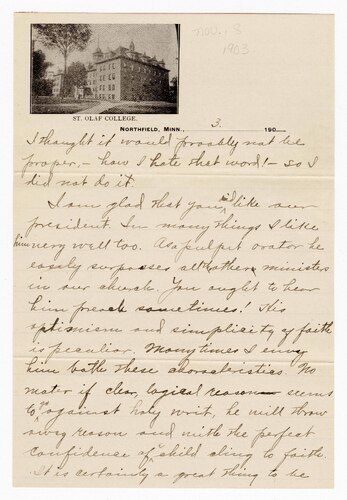 Nov. 3
1903
ST. OLAF COLLEGE.
NORTHFIELD, MINN., 3. 190
I thought it would proably not be
proper, – how I hate that word! – so I
did not do it.
I am glad that you like our
president. In many things I like
him very well too. As a pulpit orator he
easely surpasses all other ministers
in our church. You ought to hear
him preach sometimes! His
optimism and simplicity of faith
is peculiar. Many times I envy
him both these characteristics. No
mater if clear, logical reason seems
to go against holy writ, he will throw
away reason and with the perfect
confidence of child cling to faith.
It is certainly a great thing to be